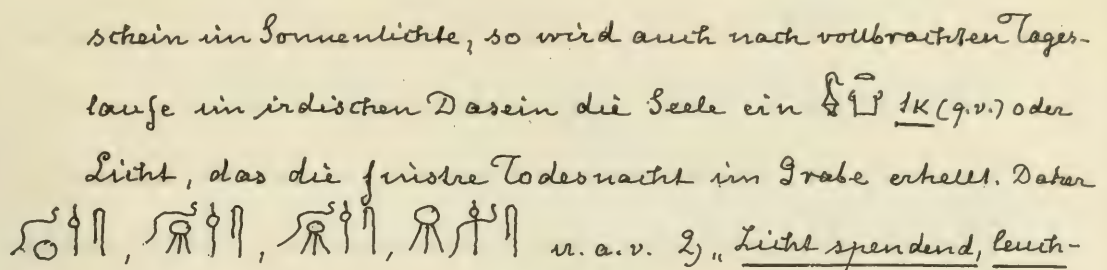 schein im Sonnenlichte, so wird auch nach vollbrachten Tages-
laufe im irdischen Dasein die Seele ein (q.v.) oder
Licht, das die finstre Todesnacht im Grabe erhellt. Daher
, , , u. a. v. 2) „Licht spendend, leuch-